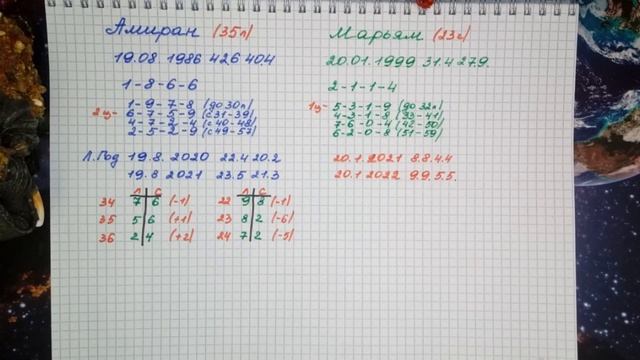 Амиран (35л)
19.08.1986 42640.4
1-8-6-6
2ц- 1-9-7-8 (до 30л)
6-7-5-9 (с31-39)
4-7-2-4 (с40-48)
2-5-2-9 (с49-57)
Л.Год 19.8.2020 22.4 20.2
19.8 2021 23.5 21.3
Л С
34 7 6 (-1)
35 5 6 (+1)
36 2 4 (+2)
Л С
22 9 8 (-1)
23 8 2 (-6)
24 7 2 (-5)
Марьям (23г)
20.01.1999 31.4 27.9.
2-1-1-4
1ц- 5-3-1-9 (до 32л)
4-3-1-8 (33-41)
7-6-0-4 (42-50)
6-2-0-8 (51-59)
20.1.2021 8.8.4.4
20.1 2022 9.9.5.5.